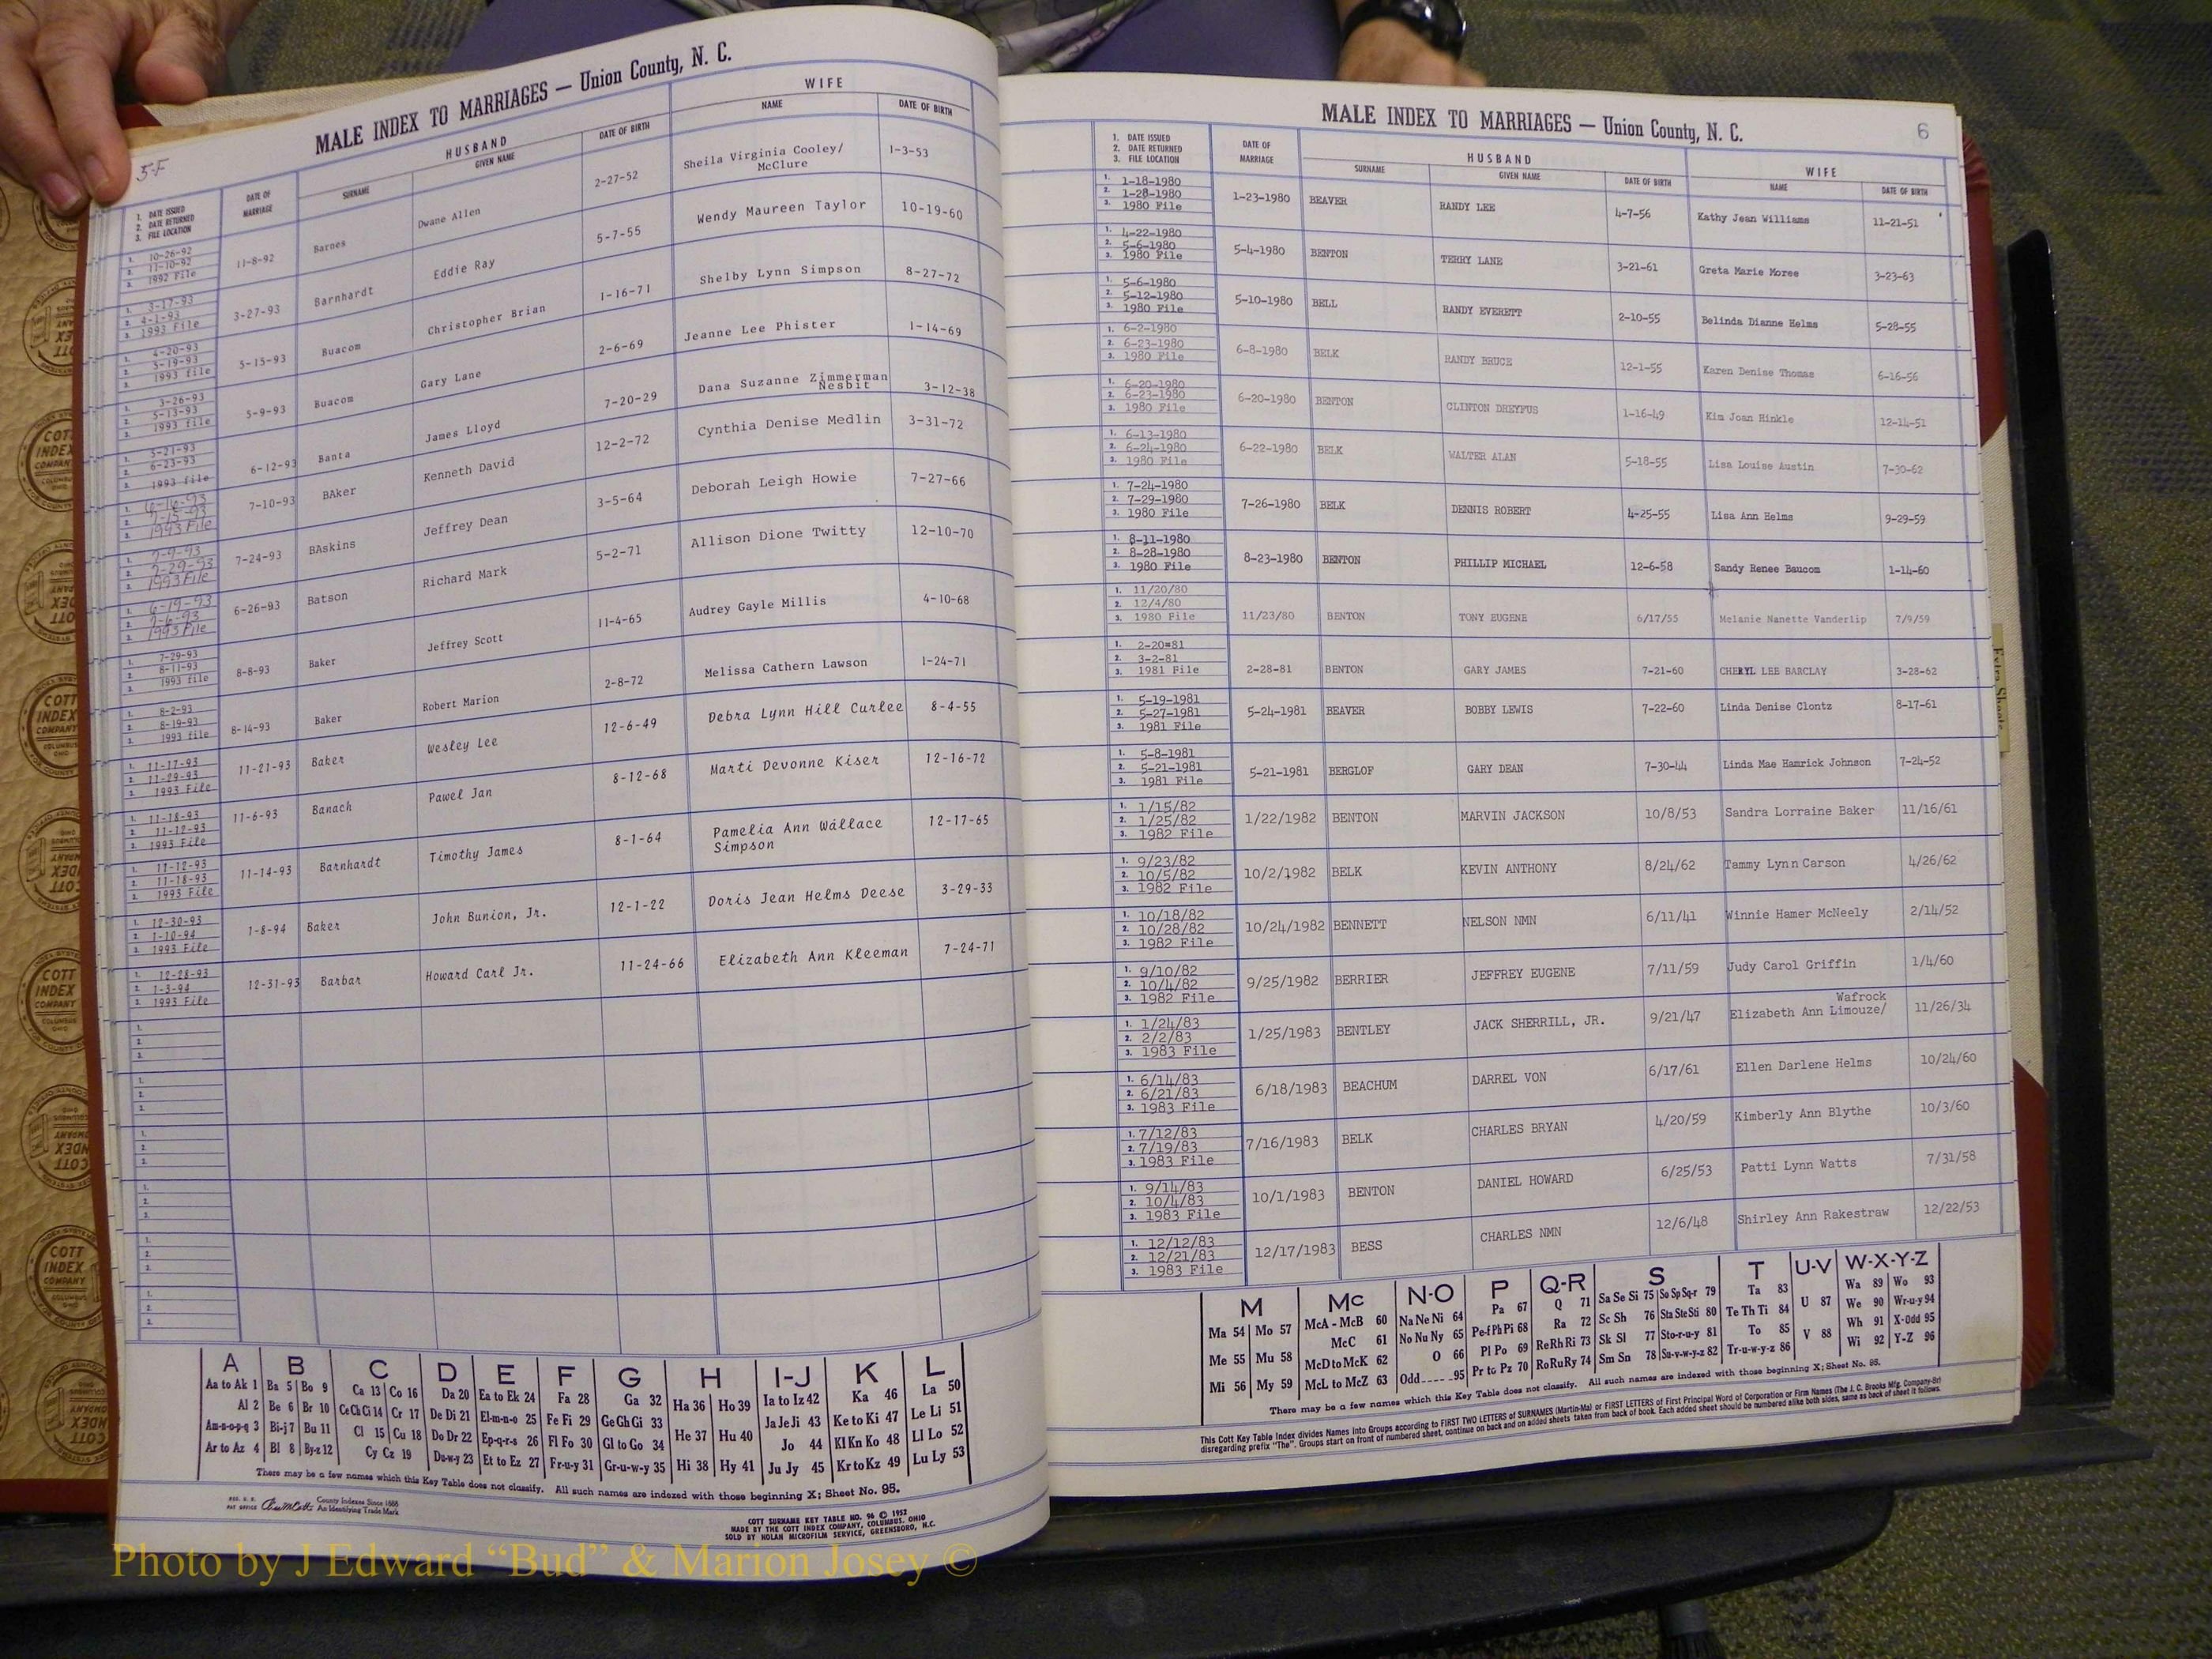 5-F
MALE INDEX TO MARRIAGES — Union County, N. C.
HUSBAND WIFE
1. DATE ISSUED
2. DATE RETURNED
3. FILE LOCATION
DATE OF MARRIAGE SURNAME GIVEN NAME DATE OF BIRTH NAME DATE OF BIRTH
1. 10-26-92
2. 11-10-92
3. 1992 File
11-8-92 Barnes Dwane Allen 2-27-52 Sheila Virginia Cooley/
McClure 1-3-53
1. 3-17-93
2. 4-1-93
3. 1993 File
3-27-93 Barnhardt Eddie Ray 5-7-55 Wendy Maureen Taylor 10-19-60
1. 4-20-93
2. 5-19-93
3. 1993 file
5-15-93 Buacom Christopher Brian 1-16-71 Shelby Lynn Simpson 8-27-72
1. 3-26-93
2. 5-13-93
3. 1993 file
5-9-93 Buacom Gary Lane 2-6-69 Jeanne Lee Phister 1-14-69
1. 5-21-93
2. 6-23-93
3. 1993 file
6-12-93 Banta James Lloyd 7-20-29 Dana Suzanne Zimmerman
Nesbit 3-12-38
1. 6-16-93
2. 7-15-93
3. 1993 File
7-10-93 BAker Kenneth David 12-2-72 Cynthia Denise Medlin 3-31-72
1. 7-9-93
2. 7-29-93
3. 1993 File
7-24-93 BAskins Jeffrey Dean 3-5-64 Deborah Leigh Howie 7-27-66
1. 6-19-93
2. 7-6-93
3. 1993 File
6-26-93 Batson Richard Mark 5-2-71 Allison Dione Twitty 12-10-70
1. 7-29-93
2. 8-11-93
3. 1993 file
8-8-93 Baker Jeffrey Scott 11-4-65 Audrey Gayle Millis 4-10-68
1. 8-2-93
2. 8-19-93
3. 1993 file
8-14-93 Baker Robert Marion 2-8-72 Melissa Cathern Lawson 1-24-71
1. 11-17-93
2. 11-29-93
3. 1993 File
11-21-93 Baker Wesley Lee 12-6-49 Debra Lynn Hill Curlee 8-4-55
1. 11-18-93
2. 11-12-93
3. 1993 File
11-6-93 Banach Pawel Jan 8-12-68 Marti Devonne Kiser 12-16-72
1. 11-12-93
2. 11-18-93
3. 1993 File
11-14-93 Barnhardt Timothy James 8-1-64 Pamelia Ann Wallace
Simpson 12-17-65
1. 12-30-93
2. 1-10-94
3. 1993 File
1-8-94 Baker John Bunion, Jr. 12-1-22 Doris Jean Helms Deese 3-29-33
1. 12-28-93
2. 1-3-94
3. 1993 File
12-31-93 Barbar Howard Carl Jr. 11-24-66 Elizabeth Ann Kleeman 7-24-71
1.
2.
3.
1.
2.
3.
1.
2.
3.
1.
2.
3.
1.
2.
3.
1.
2.
3.
A B C D E F G H I-J K L
Aa to Ak 1 Ba 5 Bo 9 Ca 13 Co 16 Da 20 Ea to Ek 24 Fa 28 Ga 32 Ha 36 Ho 39 Ia to Iz 42 Ka 46 La 50
Al 2 Be 6 Br 10 Ce Ch Ci 14 Cr 17 De Di 21 El-m-n-o 25 Fe Fi 29 Ge Gh Gi 33 Ja Je Ji 43 Ke to Ki 47 Le Li 51
Am-n-o-p-q 3 Bi-j 7 Bu 11 Cl 15 Cu 18 Do Dr 22 Ep-q-r-s 26 Fl Fo 30 Gl to Go 34 He 37 Hu 40 Jo 44 Kl Kn Ko 48 Ll Lo 52
Ar to Az 4 Bl 8 By-z 12 Cy Cz 19 Du-w-y 23 Et to Ez 27 Fr-u-y 31 Gr-u-w-y 35 Hi 38 Hy 41 Ju Jy 45 Kr to Kz 49 Lu Ly 53
There may be a few names which this Key Table does not classify. All such names are indexed with those beginning X; Sheet No. 95.
REG. U. S.
PAT OFFICE
County Indexes Since 1888
An Identifying Trade Mark
COTT SURNAME KEY TABLE NO. 96 © 1952
MADE BY THE COTT INDEX COMPANY, COLUMBUS, OHIO
SOLD BY NOLAN MICROFILM SERVICE, GREENSBORO, N.C.
MALE INDEX TO MARRIAGES — Union County, N. C. 6
HUSBAND WIFE
1. DATE ISSUED
2. DATE RETURNED
3. FILE LOCATION
DATE OF MARRIAGE SURNAME GIVEN NAME DATE OF BIRTH NAME DATE OF BIRTH
1. 1-18-1980
2. 1-28-1980
3. 1980 File
1-23-1980 BEAVER RANDY LEE 4-7-56 Kathy Jean Williams 11-21-51
1. 4-22-1980
2. 5-6-1980
3. 1980 File
5-4-1980 BENTON TERRY LANE 3-21-61 Greta Marie Moree 3-23-63
1. 5-6-1980
2. 5-12-1980
3. 1980 File
5-10-1980 BELL RANDY EVERETT 2-10-55 Belinda Dianne Helms 5-28-55
1. 6-2-1980
2. 6-23-1980
3. 1980 File
6-8-1980 BELK RANDY BRUCE 12-1-55 Karen Denise Thomas 6-16-56
1. 6-20-1980
2. 6-23-1980
3. 1980 File
6-20-1980 BENTON CLINTON DREYFUS 1-16-49 Kim Joan Hinkle 12-14-51
1. 6-13-1980
2. 6-24-1980
3. 1980 File
6-22-1980 BELK WALTER ALAN 5-18-55 Lisa Louise Austin 7-30-62
1. 7-24-1980
2. 7-29-1980
3. 1980 File
7-26-1980 BELK DENNIS ROBERT 4-25-55 Lisa Ann Helms 9-29-59
1. 8-11-1980
2. 8-28-1980
3. 1980 File
8-23-1980 BENTON PHILLIP MICHAEL 12-6-58 Sandy Renee Baucom 1-14-60
1. 11/20/80
2. 12/4/80
3. 1980 File
11/23/80 BENTON TONY EUGENE 6/17/55 Melanie Nanette Vanderlip 7/9/59
1. 2-20=81
2. 3-2-81
3. 1981 File
2-28-81 BENTON GARY JAMES 7-21-60 CHERYL LEE BARCLAY 3-28-62
1. 5-19-1981
2. 5-27-1981
3. 1981 File
5-24-1981 BEAVER BOBBY LEWIS 7-22-60 Linda Denise Clontz 8-17-61
1. 5-8-1981
2. 5-21-1981
3. 1981 File
5-21-1981 BERGLOF GARY DEAN 7-30-44 Linda Mae Hamrick Johnson 7-24-52
1. 1/15/82
2. 1/25/82
3. 1982 File
1/22/1982 BENTON MARVIN JACKSON 10/8/53 Sandra Lorraine Baker 11/16/61
1. 9/23/82
2. 10/5/82
3. 1982 File
10/2/1982 BELK KEVIN ANTHONY 8/24/62 Tammy Lynn Carson 4/26/62
1. 10/18/82
2. 10/28/82
3. 1982 File
10/24/1982 BENNETT NELSON NMN 6/11/41 Winnie Hamer McNeely 2/14/52
1. 9/10/82
2. 10/4/82
3. 1982 File
9/25/1982 BERRIER JEFFREY EUGENE 7/11/59 Judy Carol Griffin 1/4/60
1. 1/24/83
2. 2/2/83
3. 1983 File
1/25/1983 BENTLEY JACK SHERRILL, JR. 9/21/47 Wafrock
Elizabeth Ann Limouze/ 11/26/34
1. 6/14/83
2. 6/21/83
3. 1983 File
6/18/1983 BEACHUM DARREL VON 6/17/61 Ellen Darlene Helms 10/24/60
1. 7/12/83
2. 7/19/83
3. 1983 File
7/16/1983 BELK CHARLES BRYAN 4/20/59 Kimberly Ann Blythe 10/3/60
1. 9/14/83
2. 10/4/83
3. 1983 File
10/1/1983 BENTON DANIEL HOWARD 6/25/53 Patti Lynn Watts 7/31/58
1. 12/12/83
2. 12/21/83
3. 1983 File
12/17/1983 BESS CHARLES NMN 12/6/48 Shirley Ann Rakestraw 12/22/53
M Mc N-O P Q-R S T U-V W-X-Y-Z
Ma 54 Mo 57 McA - McB 60 Na Ne Ni 64 Pa 67 Q 71 Sa Se Si 75 So Sp Sq-r 79 Ta 83 U 87 Wa 89 Wo 93
Me 55 Mu 58 McC 61 No Nu Ny 65 Pe-f Ph Pi 68 Ra 72 Sc Sh 76 Sta Ste Sti 80 Te Th Ti 84 We 90 Wr-u-y 94
McD to McK 62 O 66 Pl Po 69 Re Rh Ri 73 Sk Sl 77 Sto-r-u-y 81 To 85 V 88 Wh 91 X-Odd 95
Mi 56 My 59 McL to McZ 63 Odd 95 Pr to Pz 70 Ro Ru Ry 74 Sm Sn 78 Su-v-w-y-z 82 Tr-u-w-y-z 86 Wi 92 Y-Z 96
There may be a few names which this Key Table does not classify. All such names are indexed with those beginning X; Sheet No. 95.
This Cott Key Table Index divides Names into Groups according to FIRST TWO LETTERS of SURNAMES (Martin-Ma) or FIRST LETTERS of First Principal Word of Corporation or Firm Names (The J. C. Brooks Mfg. Company-Br)
disregarding prefix "The". Groups start on front of numbered sheet, continue on back and on added sheets taken from back of book. Each added sheet should be numbered alike both sides, same as back of sheet it follows.
Extra Sheets
COTT
INDEX
COMPANY
Photo by J Edward “Bud” & Marion Josey ©